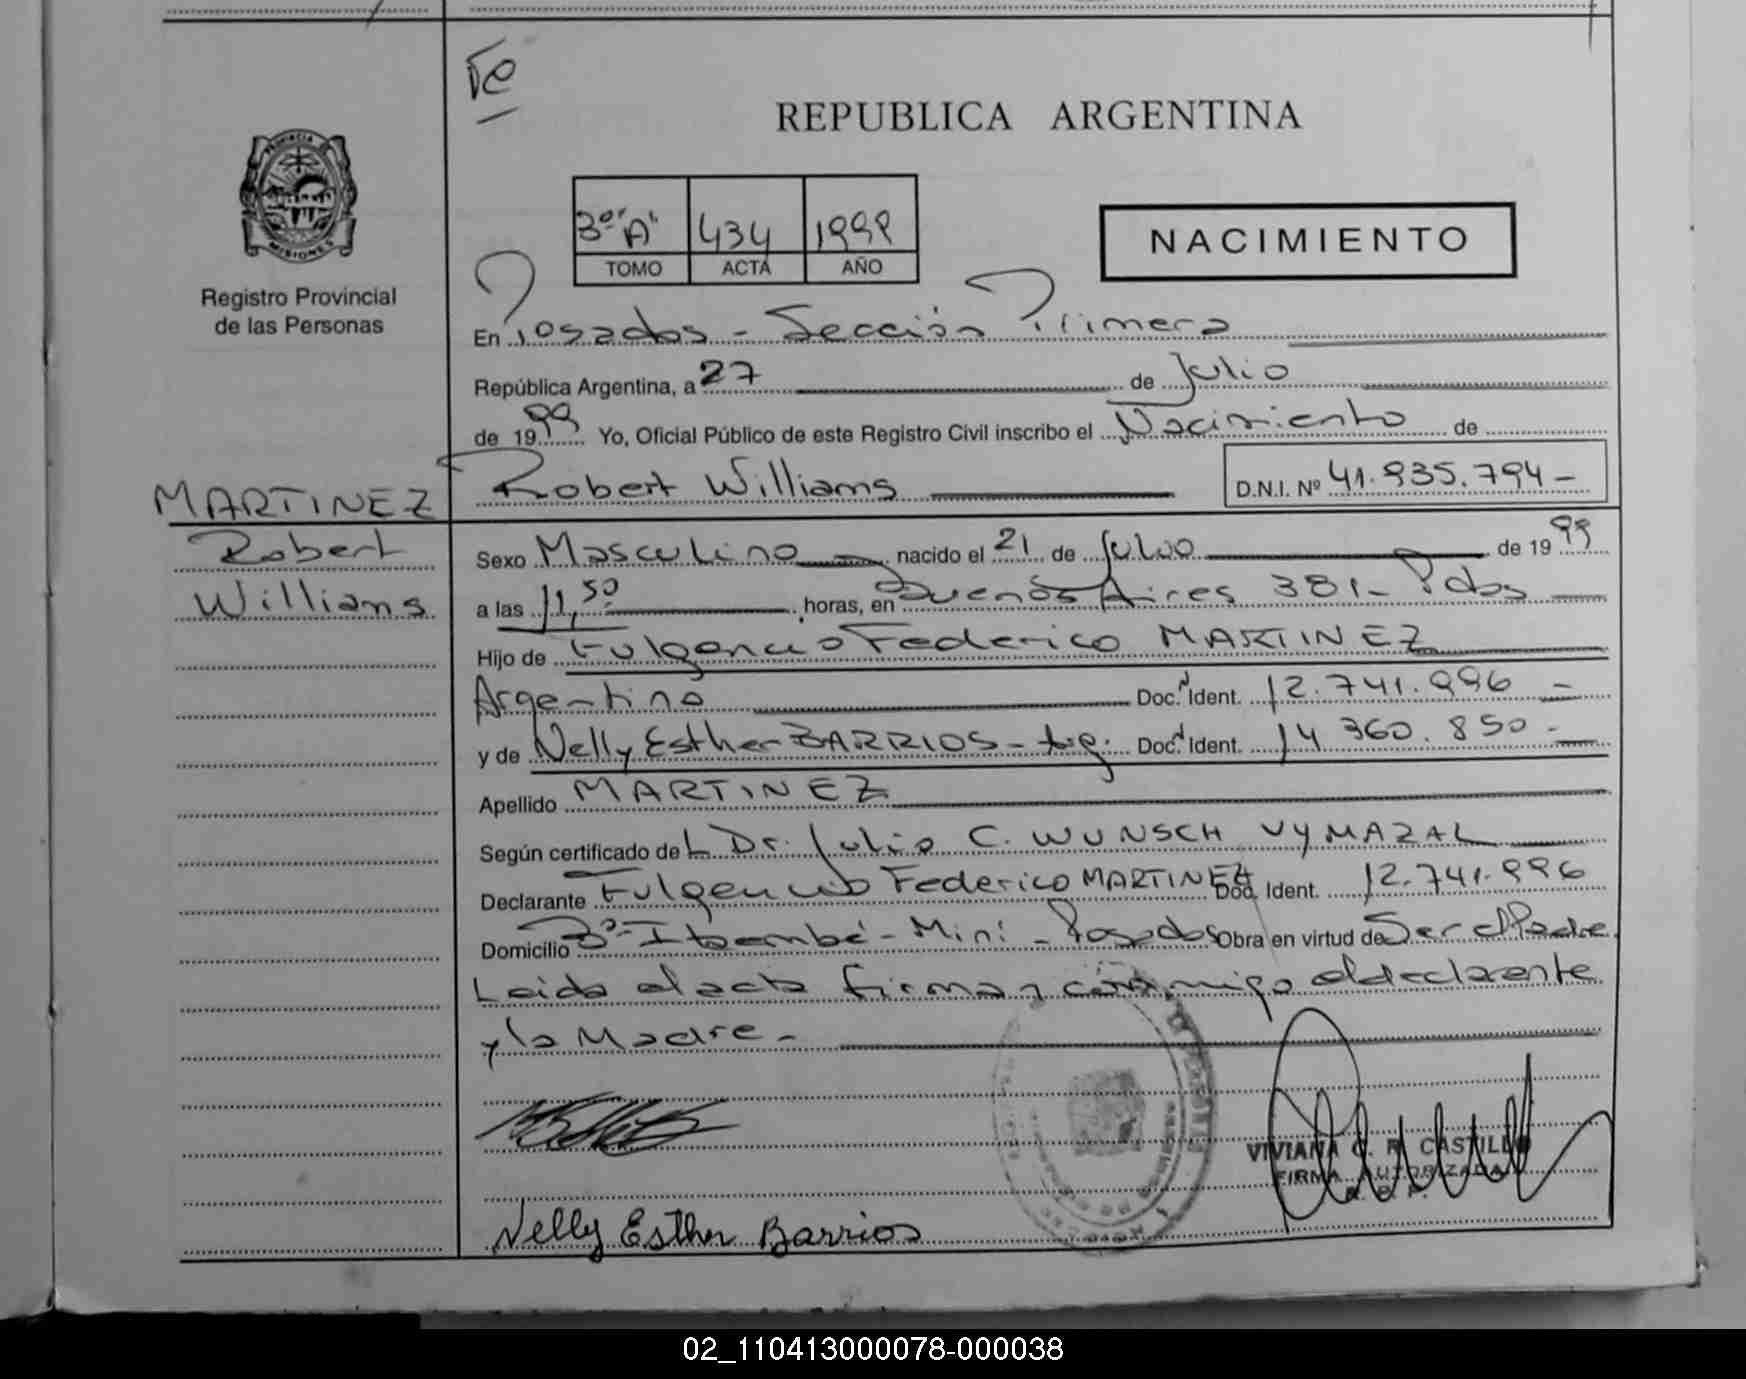 REPUBLICA ARGENTINA
3º "A" 434 1999
TOMO ACTA AÑO
NACIMIENTO
PROVINCIA DE MISIONES
Registro Provincial
de las Personas
En Posadas - Sección Primera
República Argentina, a 27 de Julio
de 1999 Yo, Oficial Público de este Registro Civil inscribo el Nacimiento de
Robert Williams D.N.I. Nº 41.935.794-
MARTINEZ
Robert
Williams
Sexo Masculino nacido el 21 de Julio de 1999
a las 11,50 horas, en Buenos Aires 381 - Pdas
Hijo de Fulgencio Federico MARTINEZ
Argentino Doc. Ident. 12.741.996 -
y de Nelly Esther BARRIOS - Arg. Doc. Ident. 14 360.850 -
Apellido MARTINEZ
Según certificado del Dr. Julio C. WUNSCH VYMAZAL
Declarante Fulgencio Federico MARTINEZ Doc. Ident. 12.741.996
Domicilio Bº Itaembé - Miní - Posadas Obra en virtud de Ser el Padre
Leida el acta firman conmigo el declarante
y la Madre -
VIVIANA C. R. CASTILLO
FIRMA AUTORIZADA
Nelly Esther Barrios
02_110413000078-000038